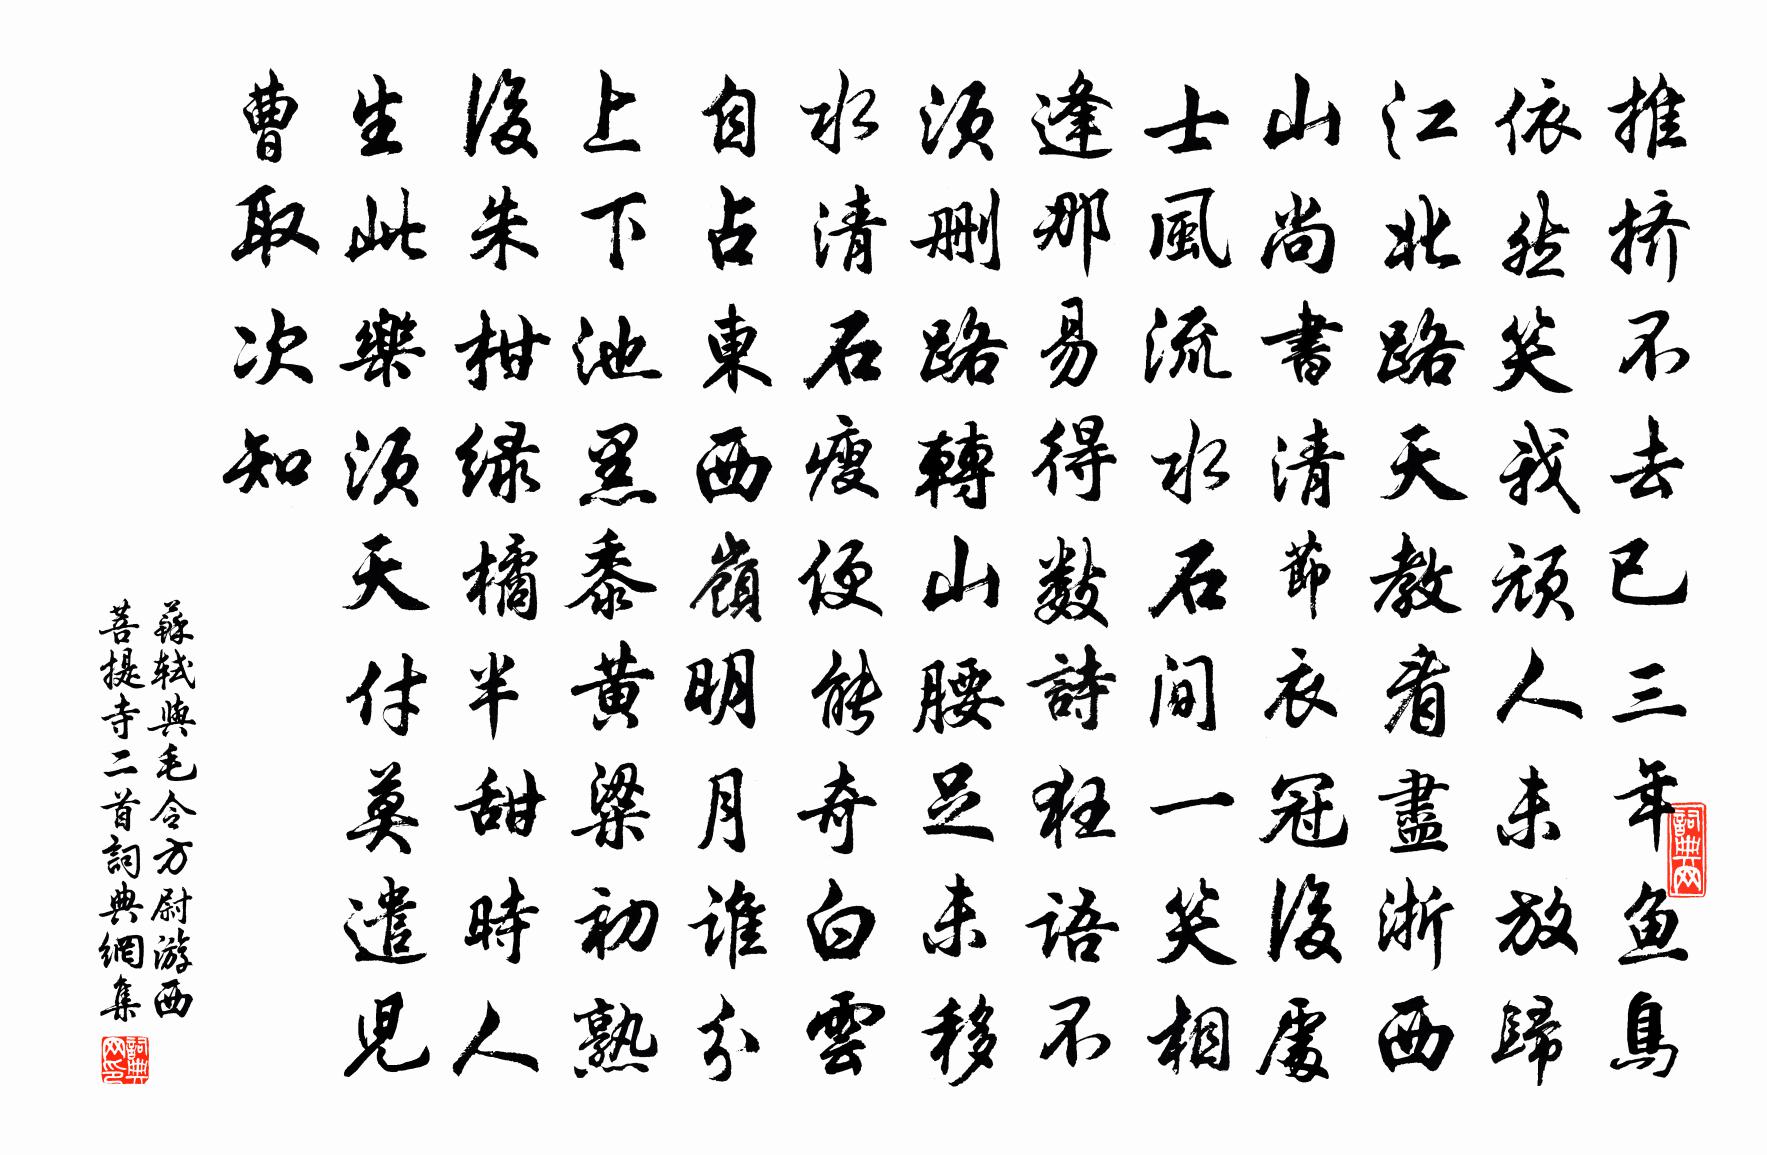 推挤不去已三年魚鳥
依然笑我頑人未放歸
江北路天教看盡浙西
山尚書清節衣冠後處
士風流水石間一笑相
逢那易得數詩狂語不
須刪路轉山腰足未移
水清石瘦便能奇白雲
自占東西嶺明月誰分
上下池黑黍黃粱初熟
後朱柑綠橘半甜時人
生此樂須天付莫遣兒
曹取次知
蘇軾與毛令方尉游西
菩提寺二首詞典網集
詞典网
詞典网